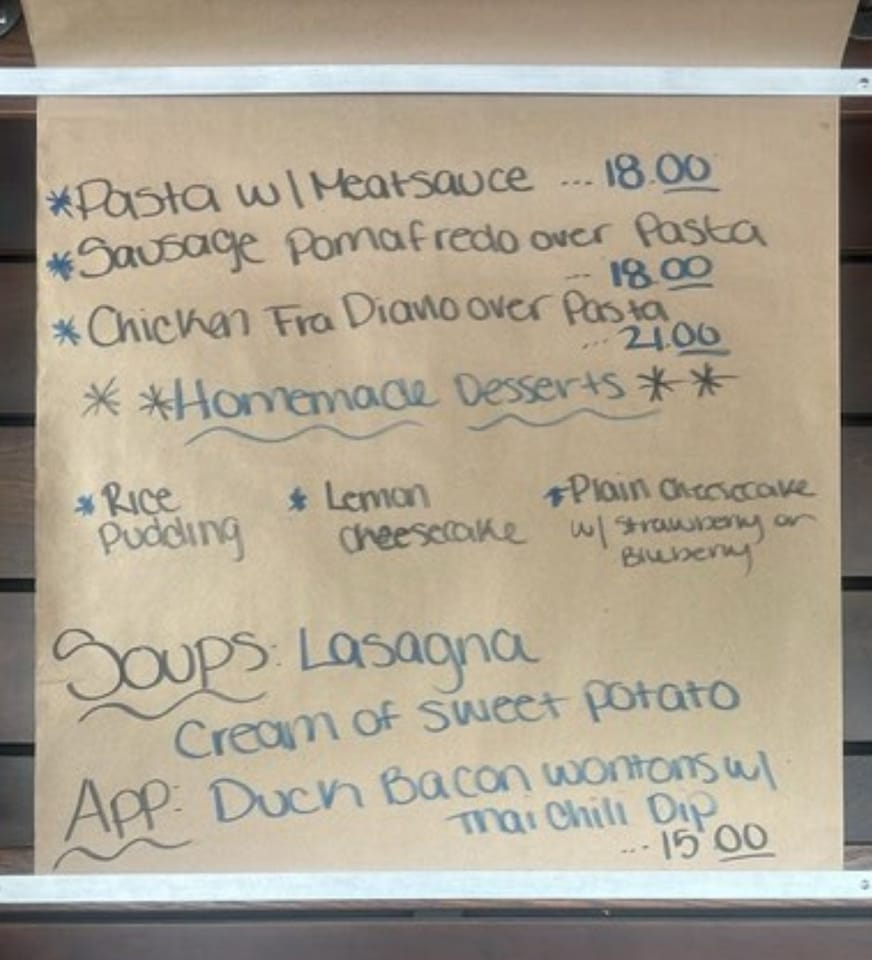 *Pasta w/ Meatsauce ... 18.00
*Sausage Pomafredo over Pasta
... 18.00
*Chicken Fra Diavlo over Pasta
... 21.00
* *Homemade Desserts * *
* Rice
Pudding
* Lemon
cheesecake
*Plain cheesecake
w/ strawberry or
Blueberry
Soups: Lasagna
Cream of sweet potato
App: Duck Bacon wontons w/
Thai Chili Dip
... 15.00